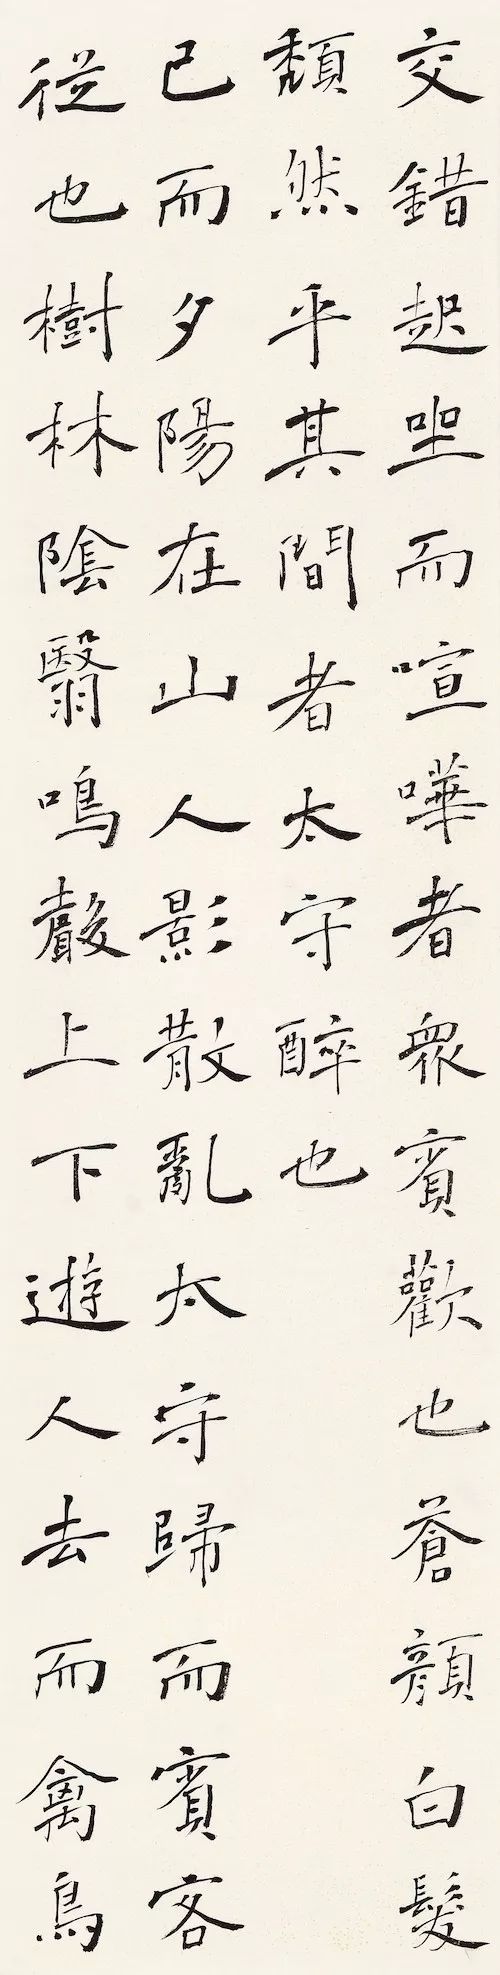 交錯起坐而喧嘩者眾賓歡也蒼顏白髮
頹然乎其間者太守醉也
已而夕陽在山人影散亂太守歸而賓客
從也樹林陰翳鳴聲上下遊人去而禽鳥